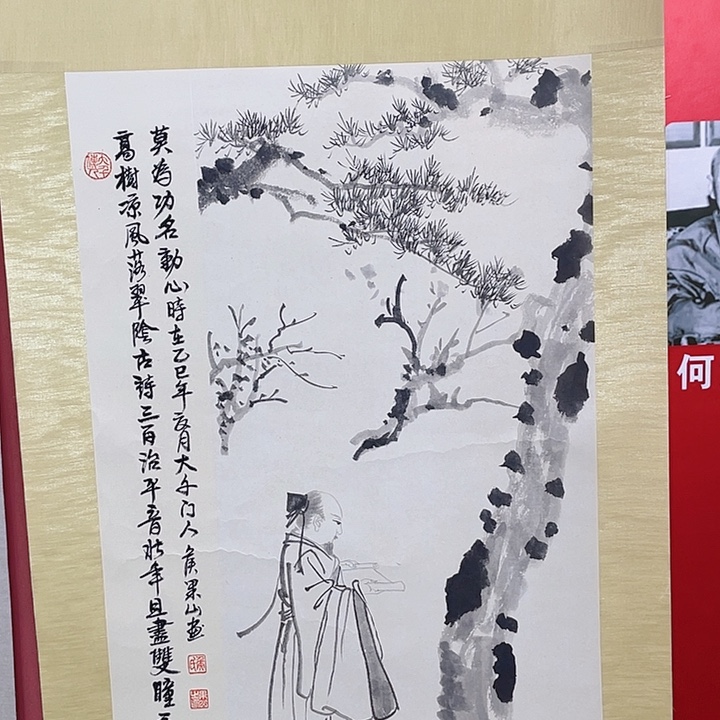 高樹凉風落翠陰古詩三百治平音壯年且盡雙瞳
莫為功名動心時在乙巳年 月大千门人 果山畫
何